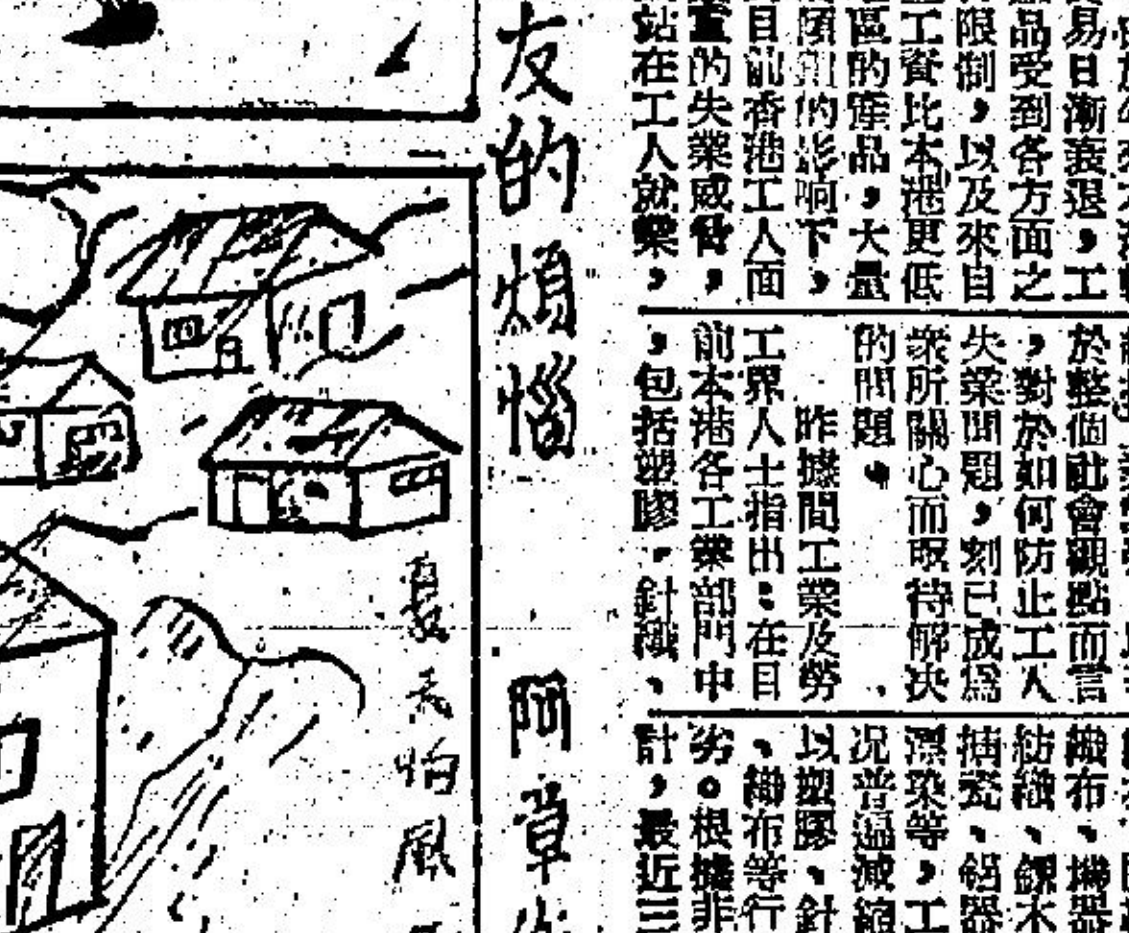 易日漸衰退，工
品受到各方面之
限制，以及來自
工資比本港更低
區的產品，大量
傾銷的影响下，
目前香港工人面
重的失業威脅，
站在工人就業，
於整個社會觀點而言
，對於如何防止工人
失業問題，刻已成爲
衆所關心而亟待解决
的問題。
昨據間工業及勞
工界人士指出：在目
前本港各工業部門中
，包括塑膠、針織、
織布、機器
紡織、木
搪瓷、鋁器
漂染等，工
况普遍減縮
以塑膠、針
、織布等行
劣。根據非
計，最近三
友的煩惱 阿章
怕風